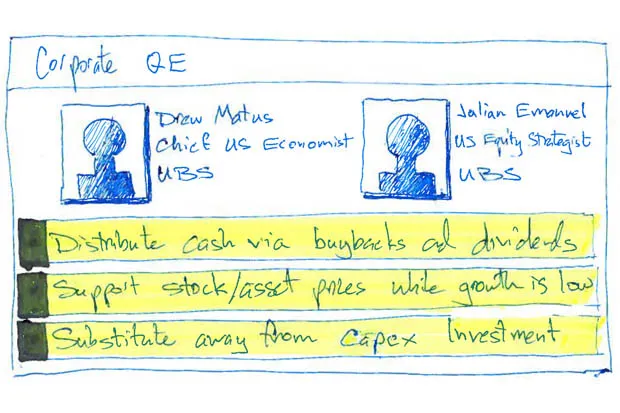 Corporate QE
Drew Matus
Chief US Economist
UBS
Julian Emanuel
US Equity Strategist
UBS
Distribute cash via buybacks ad dividends
Support stock/asset prices while growth is low
Substitute away from capex Investment